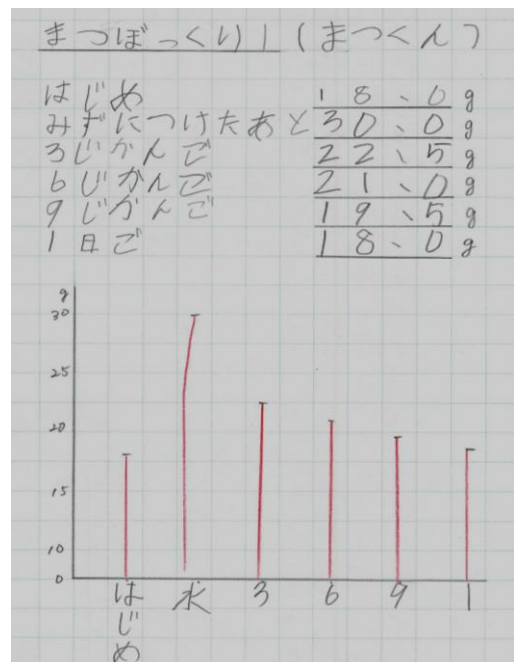 まつぼっくり1(まつくん)
はじめ 18、0g
みずにつけたあと 30、0g
3じかんご 22、5g
6じかんご 21、0g
9じかんご 19、5g
1日ご 18、0g
g
30
25
20
15
10
0
はじめ 水 3 6 9 1